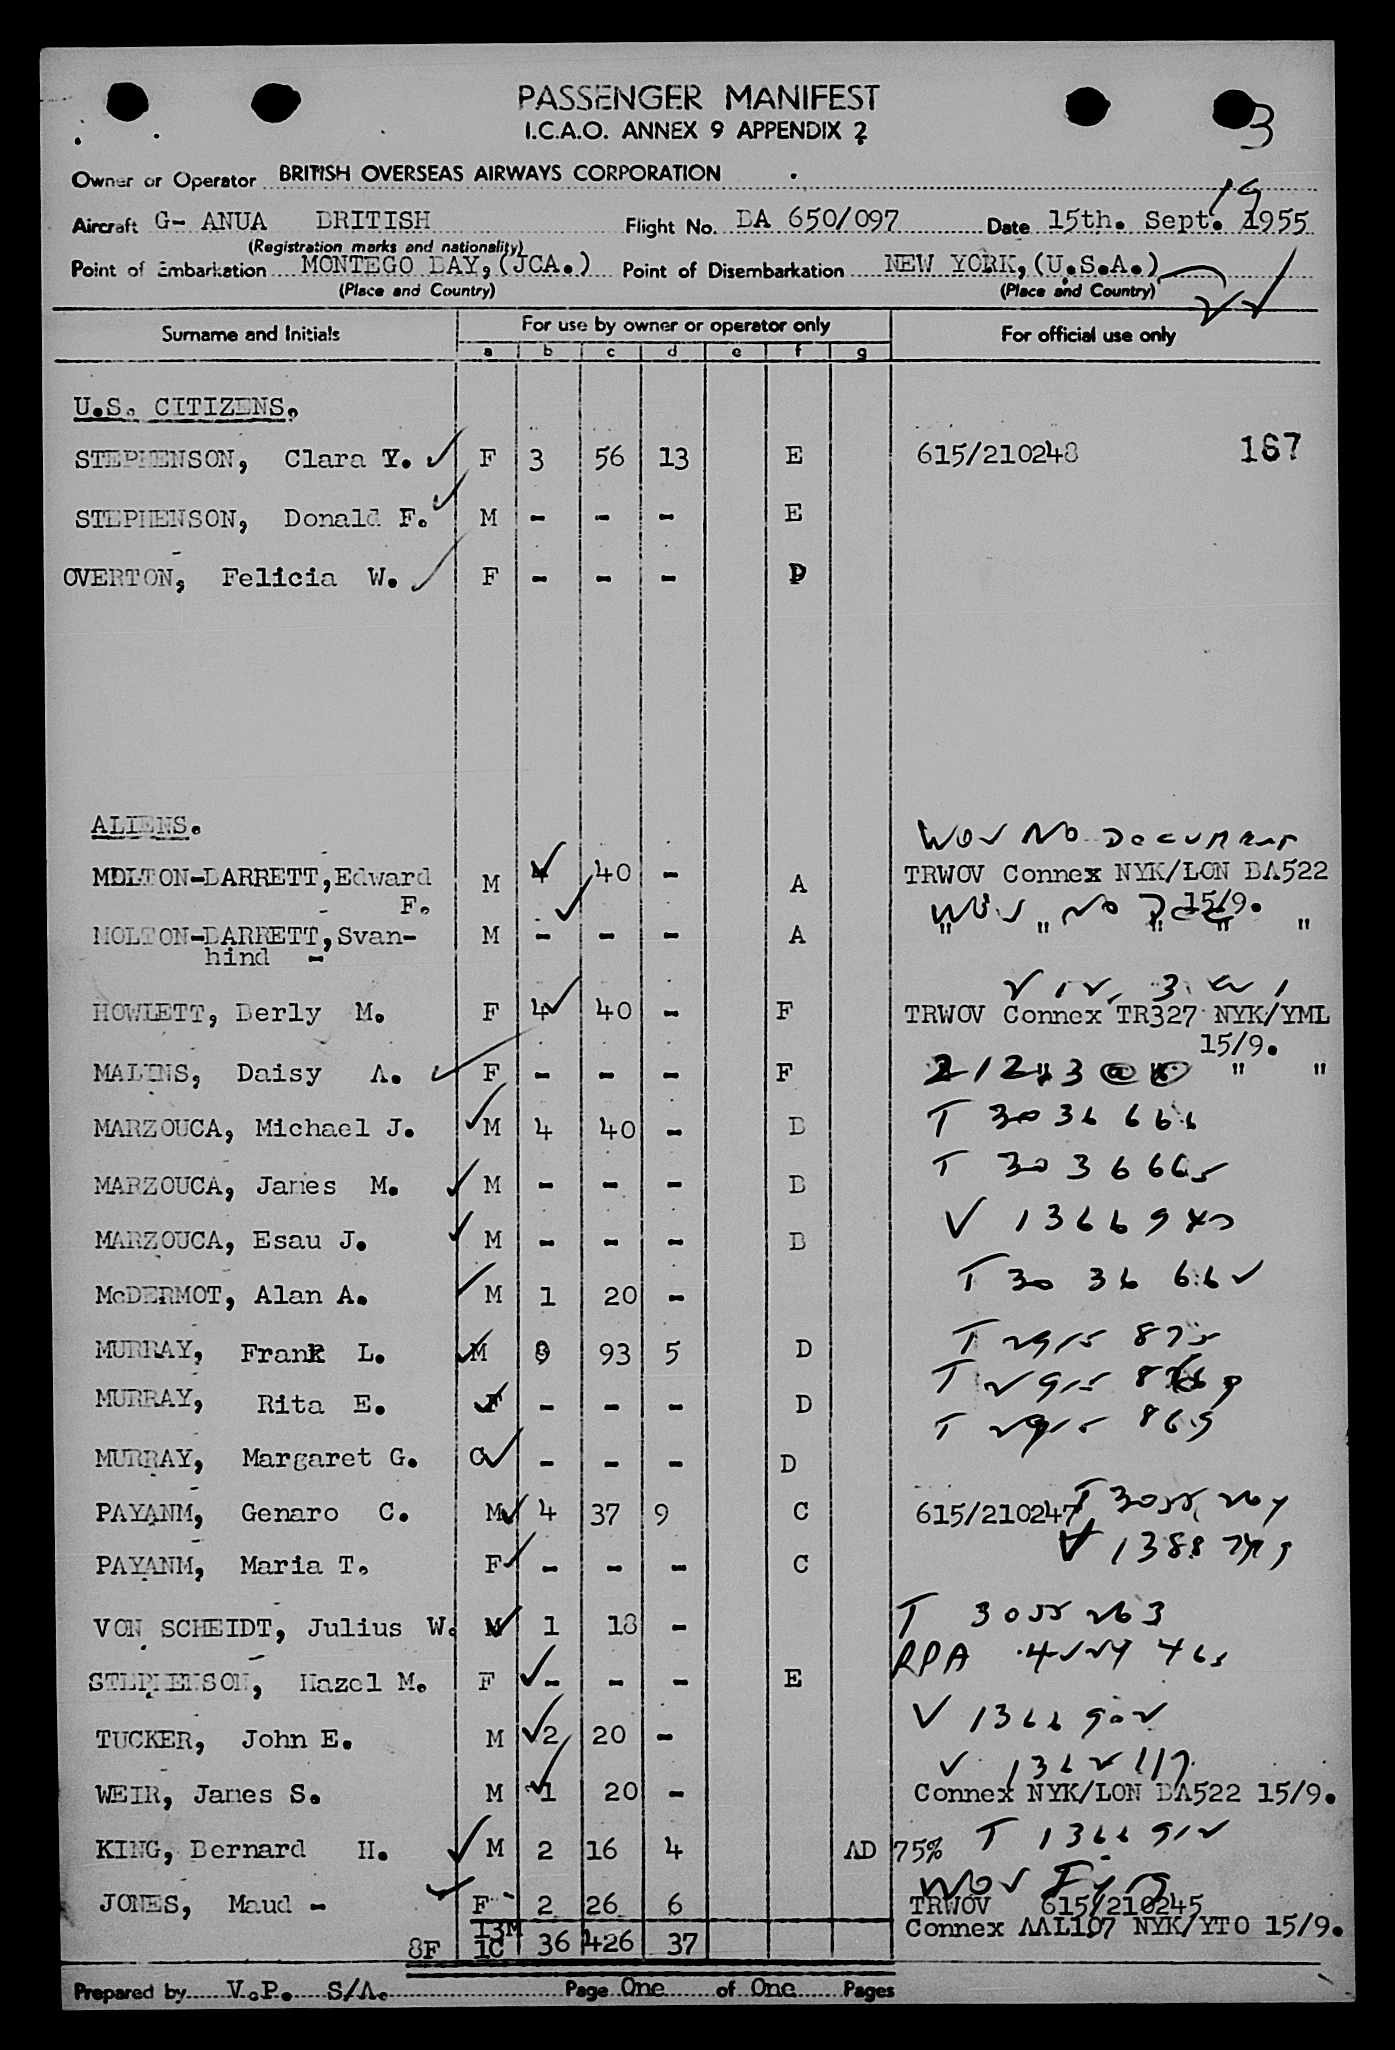 PASSENGER MANIFEST
I.C.A.O. ANNEX 9 APPENDIX 2
3
Owner or Operator BRITISH OVERSEAS AIRWAYS CORPORATION
19
Aircraft G- ANUA BRITISH Flight No. BA 650/097 Date 15th. Sept. 1955
(Registration marks and nationality)
Point of Embarkation MONTEGO BAY, (JCA.) Point of Disembarkation NEW YORK, (U.S.A.)
(Place and Country) (Place and Country)
Surname and Initials For use by owner or operator only For official use only
a b c d e f g
U.S. CITIZENS.
STEPHENSON, Clara Y. F 3 56 13 E 615/210248 167
STEPHENSON, Donald F. M - - - E
OVERTON, Felicia W. F - - -
ALIENS.
WOV NO Document
MOLTON-BARRETT, Edward M 4 40 - A TRWOV Connex NYK/LON BA522
F. 15/9.
WOV NO Doc
MOLTON-BARRETT, Svan- M - - - A " " " " "
hind -
HOWLETT, Berly M. F 4 40 - F TRWOV Connex TR327 NYK/YML
15/9.
MALINS, Daisy A. F - - - F " "
MARZOUCA, Michael J. M 4 40 - B T 3036666
MARZOUCA, James M. M - - - B T 3036665
MARZOUCA, Esau J. M - - - B V 1366940
McDERMOT, Alan A. M 1 20 - T 3036662
MURRAY, Frank L. M 9 93 5 D T 2915 875
MURRAY, Rita E. F - - - D T 2915
MURRAY, Margaret G. C - - - D T 2915 869
PAYANM, Genaro C. M 4 37 9 C 615/210247 T 3055 264
PAYANM, Maria T. F - - - C V 1388
VON SCHEIDT, Julius W. M 1 18 - T 3055 263
RPA
STEPHENSON, Hazel M. F - - - E
TUCKER, John E. M 2 20 - V 1366 902
V 1362 117
WEIR, James S. M 1 20 - Connex NYK/LON BA522 15/9.
KING, Bernard H. M 2 16 4 AD 75% T 1366 912
WOV
JONES, Maud - F 2 26 6 TRWOV 615/210245
Connex AAL107 NYK/YTO 15/9.
13M
8F 1C 36 426 37
Prepared by V.P. S/A. Page One of One Pages